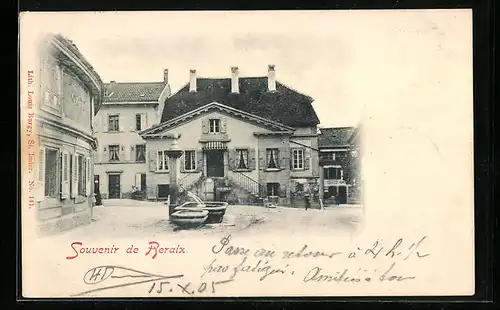 Lith. Louis Burgy, St. Imier. No. 141.
Souvenir de Beraix
Passe au retour à 2h ½
pas fatigué
Amitiés à tou
15.X.05